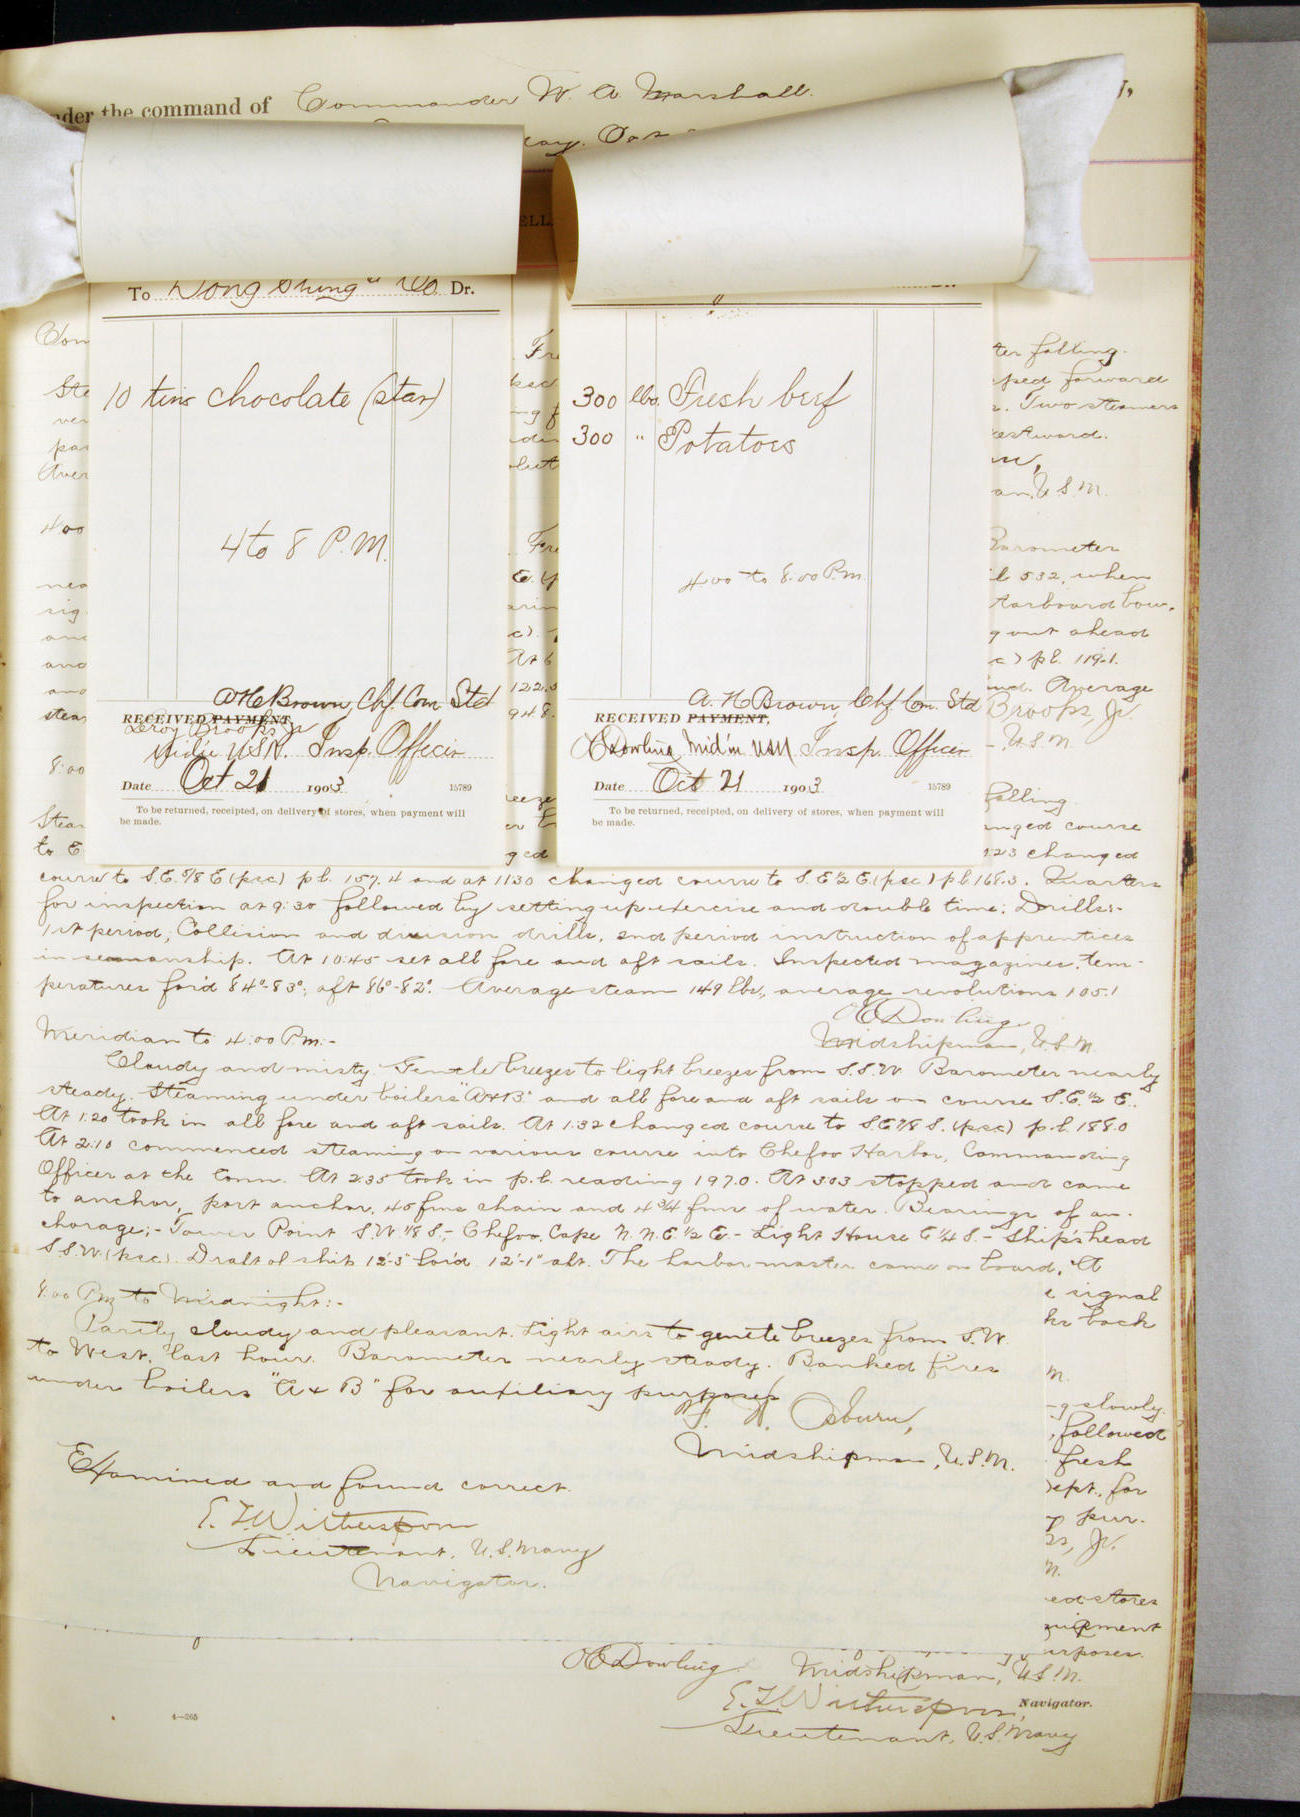 under the command of Commander W. A. Marshall.
To Dong Shing & Co. Dr.
10 tins chocolate (star)
4 to 8 P.M.
A H Brown, Chf. Com. Std
RECEIVED PAYMENT,
Leroy Brooks Jr
Mid'n USN. Insp. Officer
Date Oct 21 1903 15789
To be returned, receipted, on delivery of stores, when payment will
be made.
300 lbs. Fresh beef
300 " Potatoes
4:00 to 8:00 P.m.
A. H Brown, Chf. Com. Std
RECEIVED PAYMENT,
O C Dowling Mid'n USN Insp. Officer
Date Oct 21 1903 15789
To be returned, receipted, on delivery of stores, when payment will
be made.
ter falling.
pped forward
s. Two steamers
estward.
an, U.S.N.
400
Barometer
il 5:32, when
starboard bow.
g out ahead
c) p.l. 119.1.
and. Average
Brooks, Jr.
U.S.N.
8:00
falling.
Stea
anged course
to E
ged
1:23 changed
course to S.E. 5/8 E (psc) p.l. 157.4 and at 11:30 changed course to S.E. 1/2 E. (psc) p.l. 168.3. Quarters
for inspection at 9:30 followed by setting up exercise and double time. Drills:-
1st period; Collision and division drills, 2nd period instruction of apprentices
in seamanship. At 10:45 set all fore and aft sails. Inspected magazines, tem-
peratures for'd 84°-83°; aft 86°-82°. Average steam 149 lbs., average revolutions 105.1
O C Dowling
Midshipman, U.S.N.
Meridian to 4:00 P.m.:-
Cloudy and misty. Gentle breezes to light breezes from S.S.W. Barometer nearly
steady. Steaming under boilers "A & B" and all fore and aft sails on course S.E. 1/2 E.
At 1:20 took in all fore and aft sails. At 1:32 changed course to S.E. 7/8 S. (psc) p.l. 188.0
At 2:10 commenced steaming on various course into Chefoo Harbor, Commanding
Officer at the Conn. At 2:35 took in p.l. reading 197.0. At 3:03 stopped and came
to anchor, port anchor, 45 fms chain and 4 3/4 fms of water. Bearings of an-
chorage;- Tower Point S.W. 1/8 S.- Chefoo Cape N.N.E. 1/2 E.- Light House E 1/4 S.- Ship's head
S.S.W. (psc). Draft of ship 12'-5" for'd. 12'-1" aft. The harbor master came on board. At
e signal
8:00 Pm to Midnight:-
hr back
Partly cloudy and pleasant. Light airs to gentle breezes from S.W.
to West, last hour. Barometer nearly steady. Banked fires
under boilers "A & B" for auxiliary purposes
g slowly.
F. H. Osburn,
, followed
Midshipman, U.S.N.
fresh
Examined and found correct.
ept., for
E. T. Witherspoon
y pur.
Lieutenant, U.S. Navy
Jr.
Navigator.
ed stores
uipment
urposes.
O C Dowling Midshipman, U.S.N.
E. T. Witherspoon, Navigator.
Lieutenant, U.S. Navy
4—265